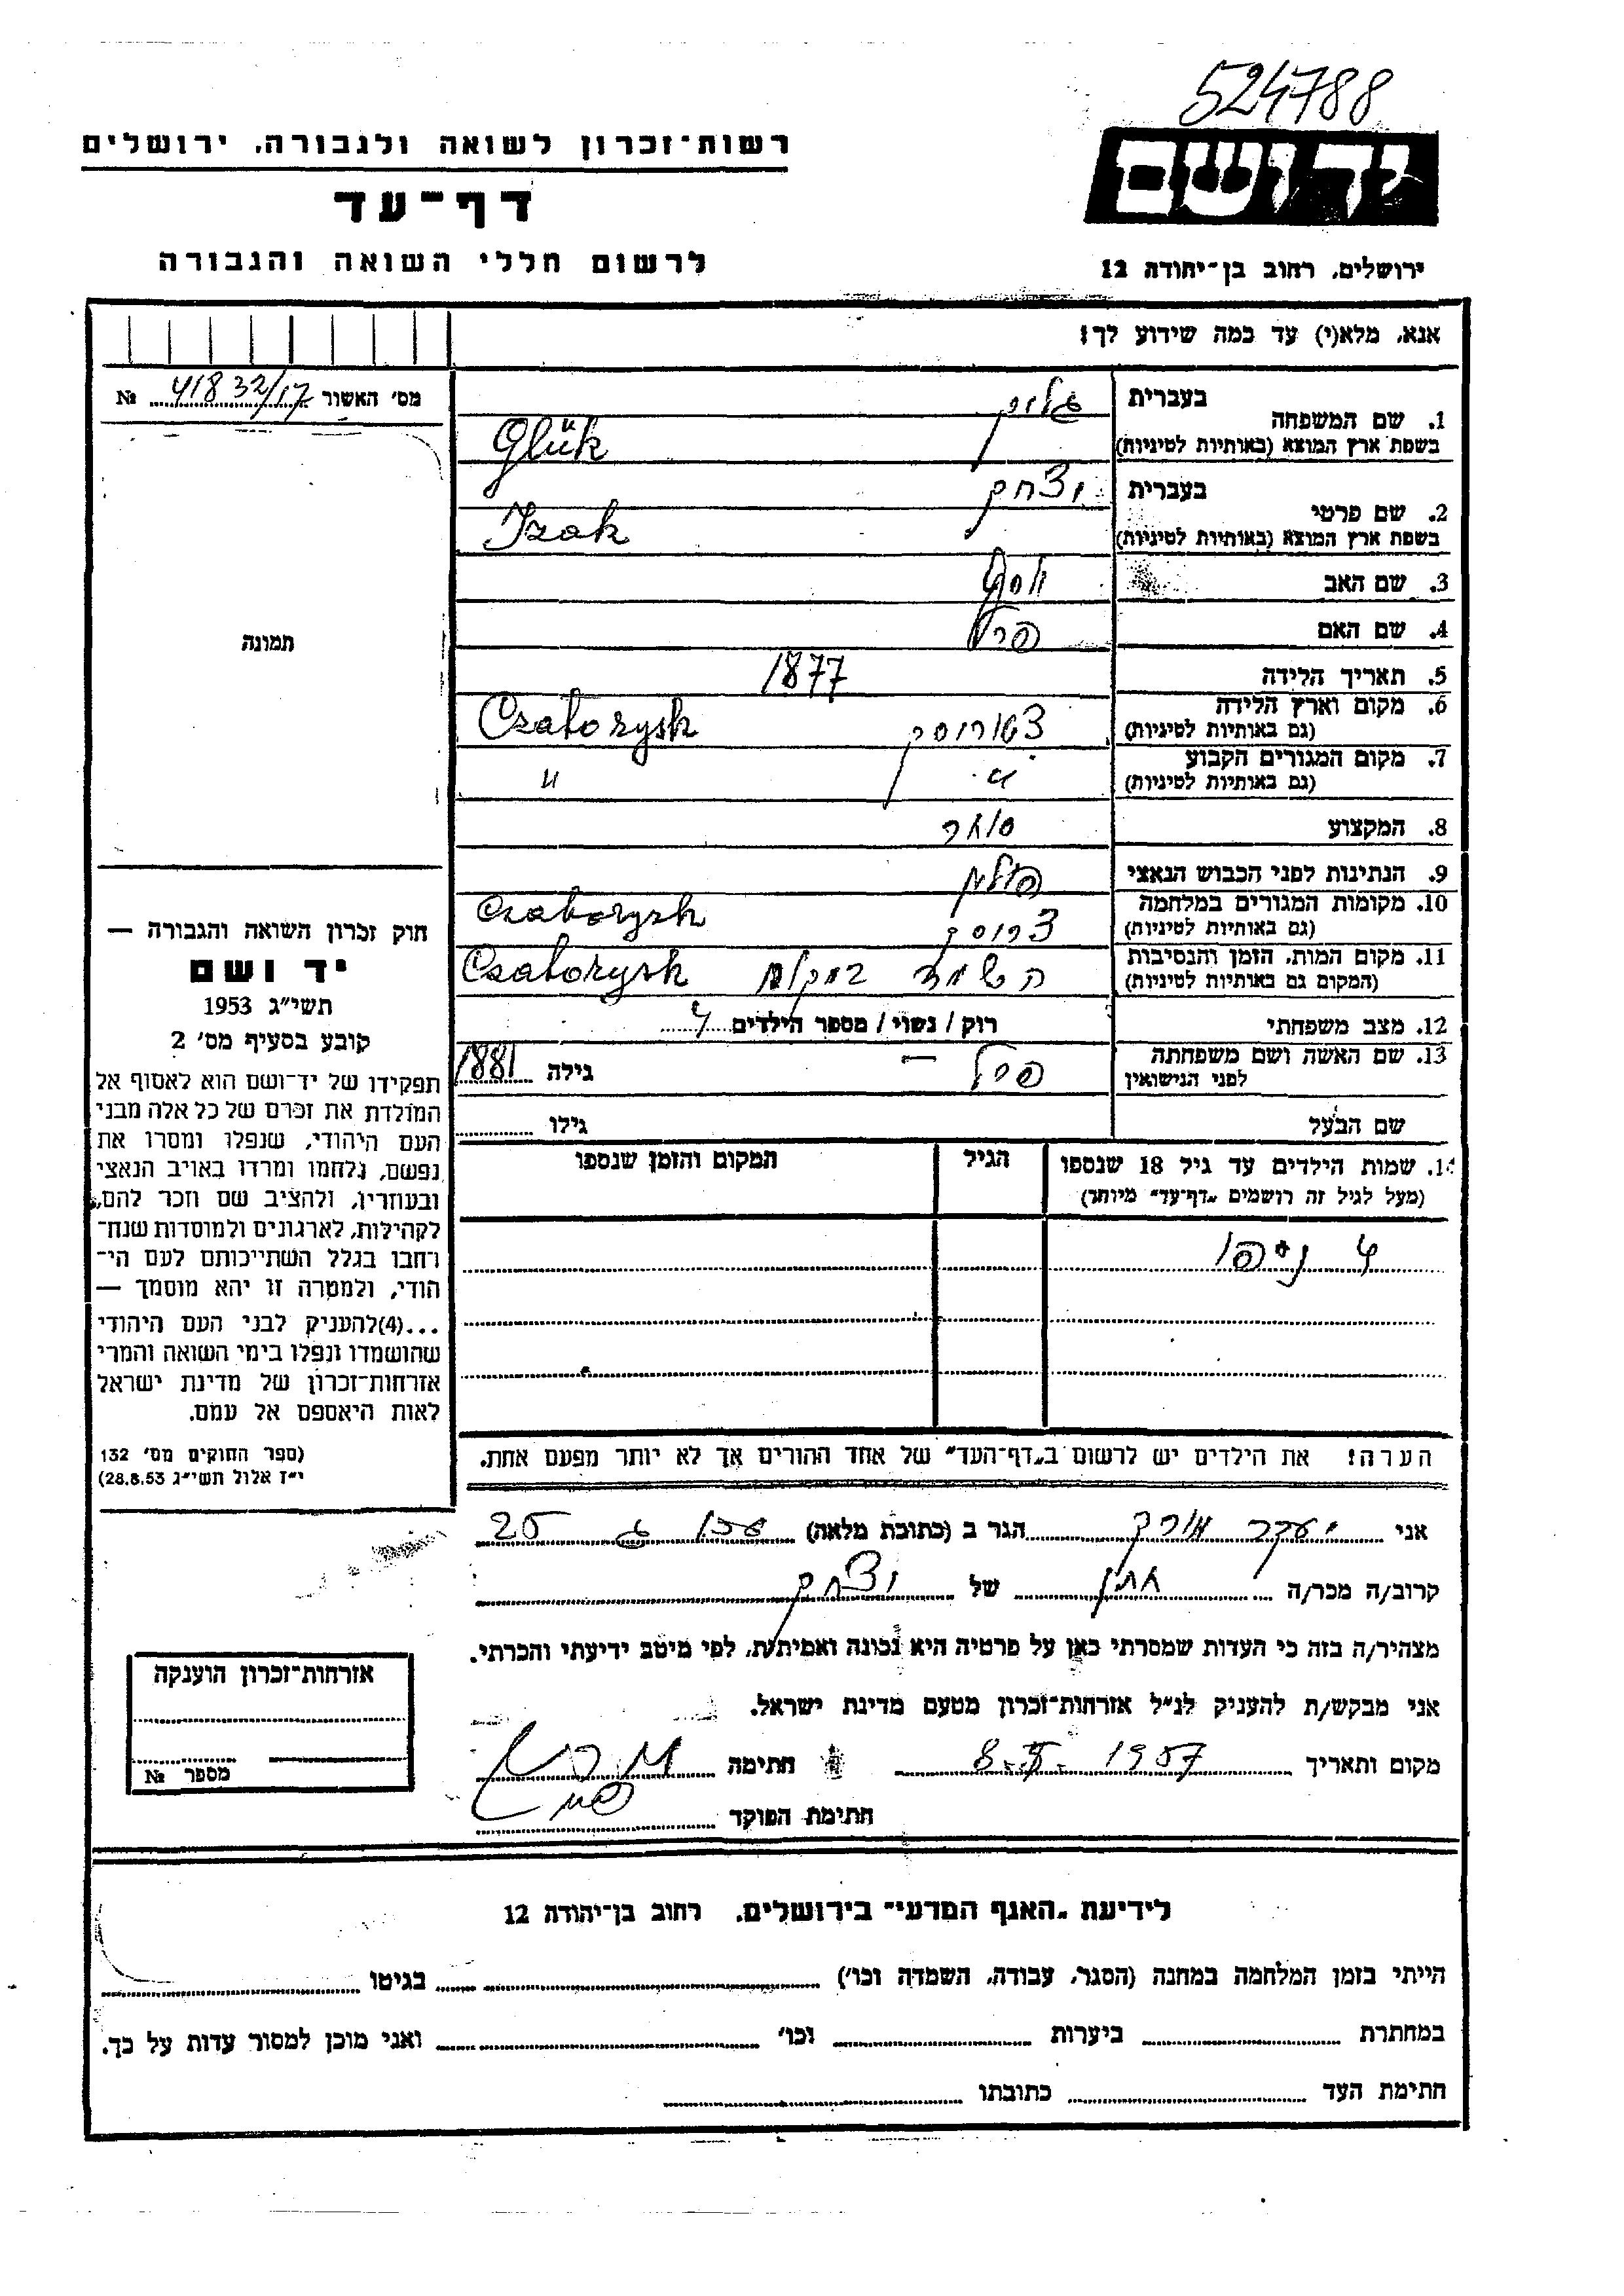 524788
רשות־זכרון לשואה ולגבורה, ירושלים
יד ושם
דף־עד
לרשום חללי השואה והגבורה
ירושלים, רחוב בן־יהודה 12
אנא, מלא(י) עד כמה שידוע לך!
מס׳ האשור 41832/17 №
בעברית
1. שם המשפחה
בשפת ארץ המוצא (באותיות לטיניות) Glük
בעברית יצחק
2. שם פרטי
בשפת ארץ המוצא (באותיות לטיניות) Izak
3. שם האב יוסף
4. שם האם פרל
5. תאריך הלידה 1877
6. מקום וארץ הלידה Czatorysk
(גם באותיות לטיניות)
7. מקום המגורים הקבוע " "
(גם באותיות לטיניות)
8. המקצוע סוחר
9. הנתינות לפני הכבוש הנאצי פולין
10. מקומות המגורים במלחמה Czatorysk
(גם באותיות לטיניות)
11. מקום המות, הזמן והנסיבות Czatorysk
(המקום גם באותיות לטיניות)
12. מצב משפחתי רוק / נשוי / מספר הילדים 4
13. שם האשה ושם משפחתה פרל — גילה 1881
לפני הנישואין
שם הבעל גילו
14. שמות הילדים עד גיל 18 שנספו הגיל המקום והזמן שנספו
(מעל לגיל זה רושמים „דף־עד״ מיוחד)
4 ניספו
הערה! את הילדים יש לרשום ב„דף־העד״ של אחד ההורים אך לא יותר מפעם אחת.
תמונה
חוק זכרון השואה והגבורה —
יד ושם
תשי״ג 1953
קובע בסעיף מס׳ 2
תפקידו של יד־ושם הוא לאסוף אל
המולדת את זכרם של כל אלה מבני
העם היהודי, שנפלו ומסרו את
נפשם, נלחמו ומרדו באויב הנאצי
ובעוזריו, ולהציב שם וזכר להם,
לקהילות, לארגונים ולמוסדות שנח־
רחבו בגלל השתייכותם לעם הי־
הודי, ולמטרה זו יהא מוסמך —
...(4)להעניק לבני העם היהודי
שהושמדו ונפלו בימי השואה והמרי
אזרחות־זכרון של מדינת ישראל
לאות היאספם אל עמם.
(ספר החוקים מס׳ 132
י״ז אלול תשי״ג 28.8.53)
אני יעקב הגר ב (כתובת מלאה) 25
קרוב/ה מכר/ה חתן של יצחק
מצהיר/ה בזה כי העדות שמסרתי כאן על פרטיה היא נכונה ואמיתית, לפי מיטב ידיעתי והכרתי.
אני מבקש/ת להעניק לנ״ל אזרחות־זכרון מטעם מדינת ישראל.
מקום ותאריך 8-5-1957 חתימה
חתימת הפוקד
אזרחות־זכרון הוענקה
מספר №
לידיעת „האגף המדעי״ בירושלים, רחוב בן־יהודה 12
הייתי בזמן המלחמה במחנה (הסגר, עבודה, השמדה וכו׳) בגיטו
במחתרת ביערות וכו׳ ואני מוכן למסור עדות על כך.
חתימת העד כתובתו